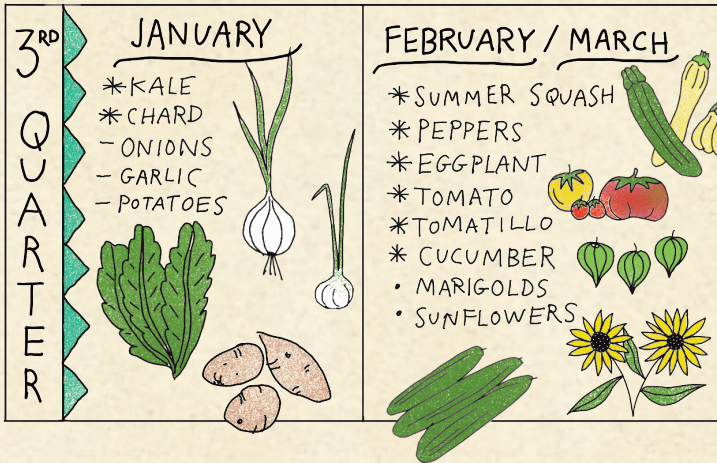 3RD QUARTER
JANUARY
* KALE
* CHARD
- ONIONS
- GARLIC
- POTATOES
FEBRUARY / MARCH
* SUMMER SQUASH
* PEPPERS
* EGGPLANT
* TOMATO
* TOMATILLO
* CUCUMBER
• MARIGOLDS
• SUNFLOWERS